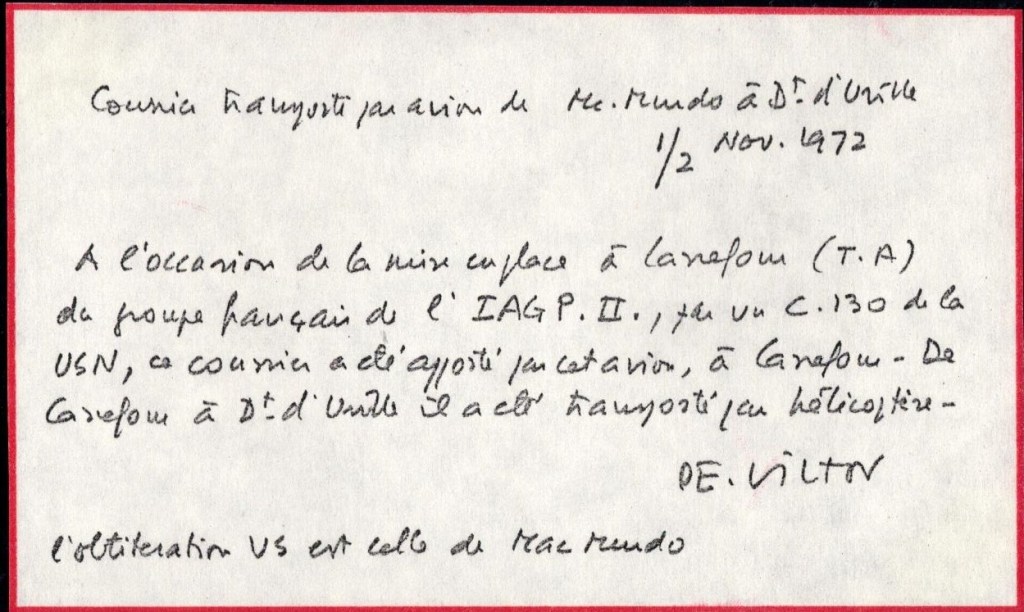 Courrier transporté par avion de Mc. Murdo à Dt. d'Urville
1/2 Nov. 1972
A l'occasion de la mise en place à Carrefour (T.A)
du groupe français de l'IAGP.II., par un C.130 de la
USN, ce courrier a été apporté par cet avion, à Carrefour - De
Carrefour à Dt. d'Urville il a été transporté par hélicoptère -
PE. VICTOR
l'oblitération US est celle de Mac Murdo